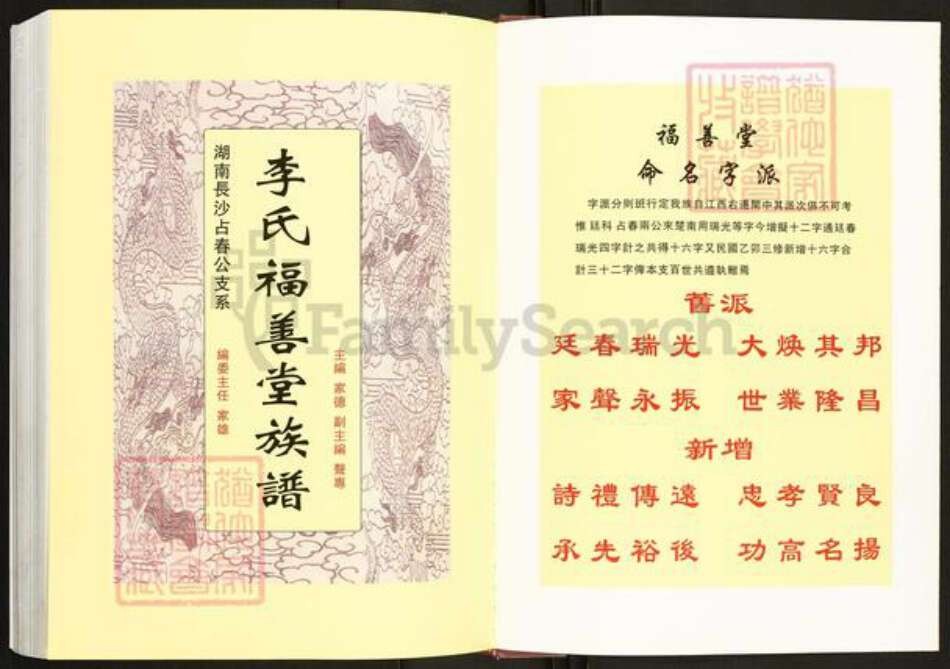 李氏福善堂族譜
湖南長沙占春公支系
主編 家德 副主編 聲專
編委主任 家雄
福善堂
命名字派
字派分則班行定我族自江西右遷閩中其派次俱不可考
惟廷科占春兩公來楚南用瑞光等字今增擬十二字通廷春
瑞光四字計之共得十六字又民國乙卯三修新增十六字合
計三十二字傳本支百世共遵執睢焉
舊派
廷春瑞光 大煥其邦
家聲永振 世業隆昌
新增
詩禮傳遠 忠孝賢良
承先裕後 功高名揚
FamilySearch